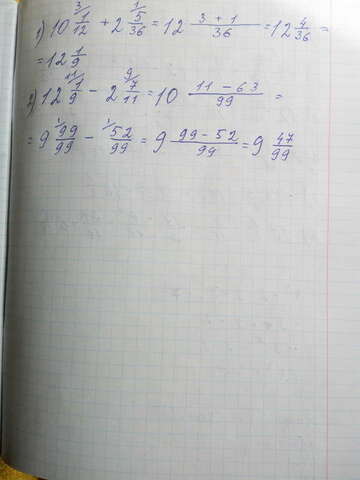 1) 10 3/ 1/12 + 2 1/ 5/36 = 12 3 + 1/36 = 12 4/36 =
= 12 1/9
2) 12 11/ 1/9 - 2 9/ 7/11 = 10 11 - 63/99 =
= 9 1/ 99/99 - 1/ 52/99 = 9 99 - 52/99 = 9 47/99